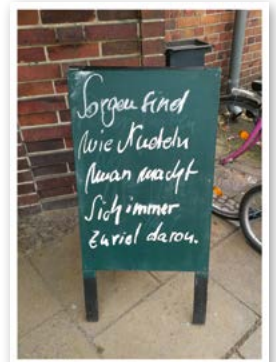 Sorgen sind
wie Nudeln
man macht
sich immer
zuviel davon.